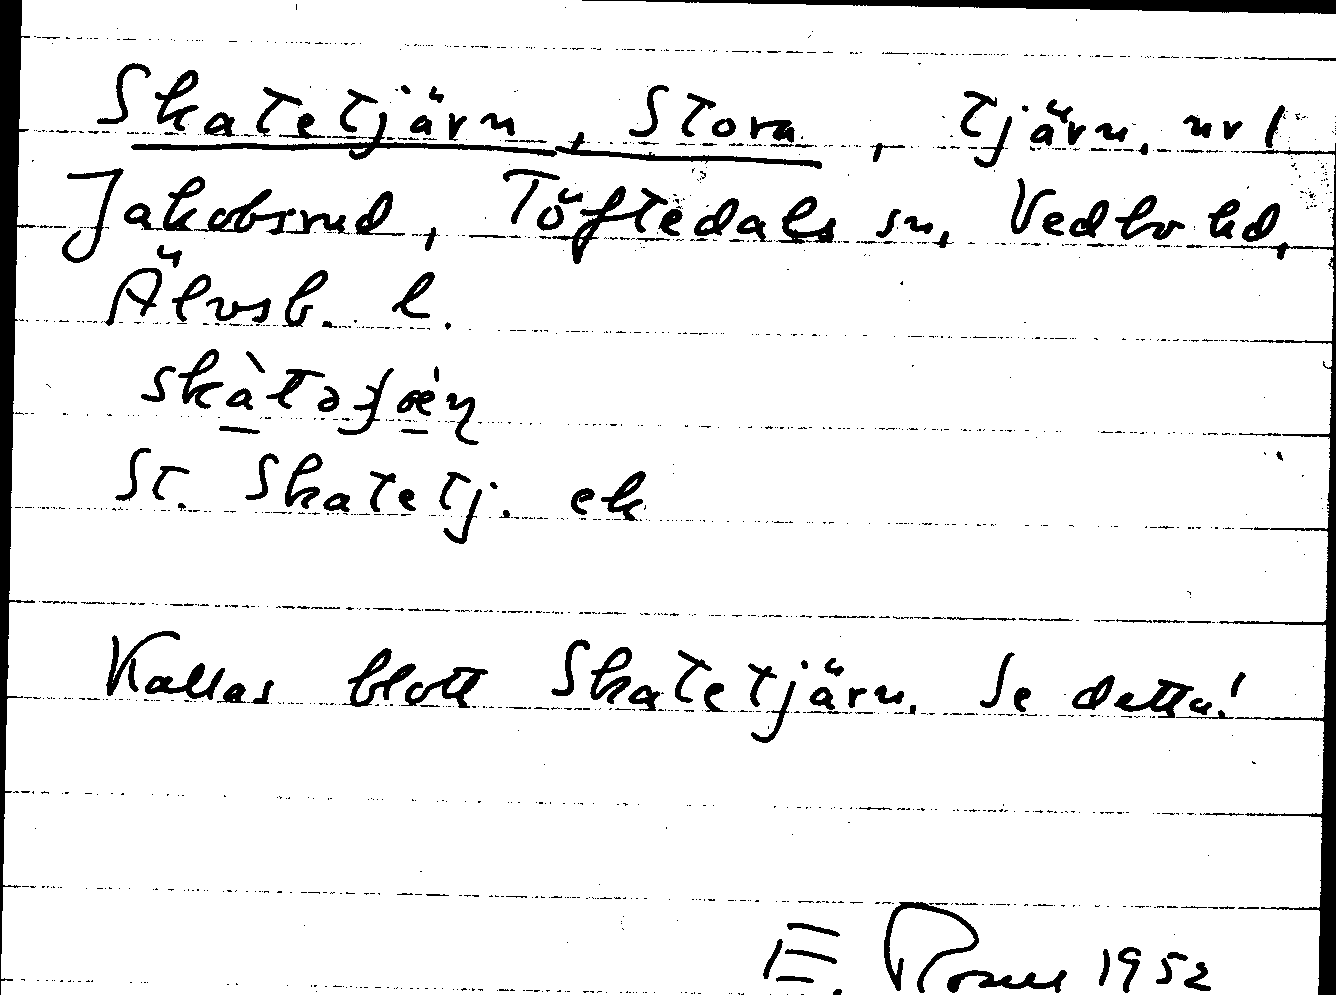 Skatetjärn, Stora, tjärn, nr 1
Jakobsrud, Töftedals sn, Vedbo hd,
Älvsb. l.
St. Skatetj. ek
Kallas blott Skatetjärn. Se detta!
E. Rosell 1952